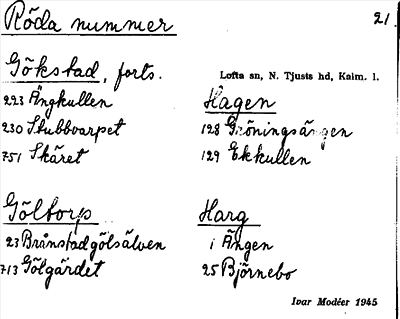 Röda nummer
21.
Gökstad, forts.
Lofta sn, N. Tjusts hd, Kalm. l.
223 Ängkullen
230 Stubbvarpet
751 Skäret
Hagen
128 Gröningsängen
129 Ekkullen
Göltorp
23 Brånstadgölsälven
713 Gölgärdet
Harg
1 Ängen
25 Björnebo
Ivar Modéer 1945